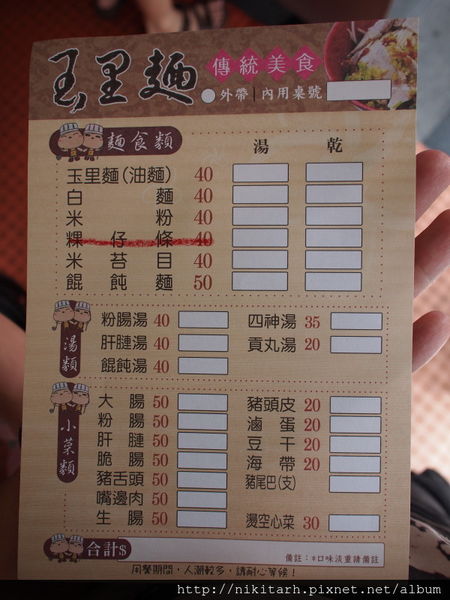 玉里麵 傳統美食
外帶 | 內用桌號
麵食類 湯 乾
玉里麵(油麵) 40
白麵 40
米粉 40
粿仔條 40
米苔目 40
餛飩麵 50
湯類
粉腸湯 40 四神湯 35
肝腱湯 40 貢丸湯 20
餛飩湯 40
小菜類
大腸 50 豬頭皮 20
粉腸 50 滷蛋 20
肝腱 50 豆干 20
脆腸 50 海帶 20
豬舌頭 50 豬尾巴(支)
嘴邊肉 50
生腸 50 燙空心菜 30
合計$
備註:*口味淡重請備註
用餐期間,人潮較多,請耐心等候!
http://nikitarh.pixnet.net/album